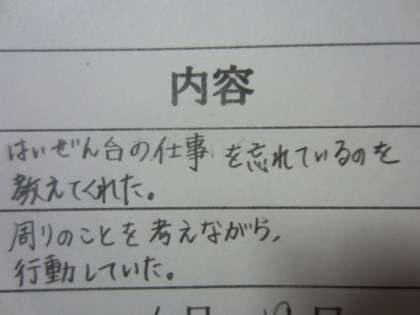 内容
はいぜん台の仕事を忘れているのを
教えてくれた。
周りのことを考えながら、
行動していた。